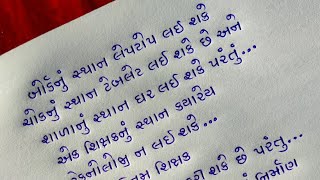 બોર્ડનું સ્થાન લેપટોપ લઈ શકે
ચોકનું સ્થાન ટેબલેટ લઈ શકે છે અને
શાળાનું સ્થાન ઘર લઈ શકે પરંતું...
એક શિક્ષકનું સ્થાન ક્યારેય
ટેકનોલોજી ન લઈ શકે...
શિક્ષક
શકે છે પરંતુ...
નિર્માણ